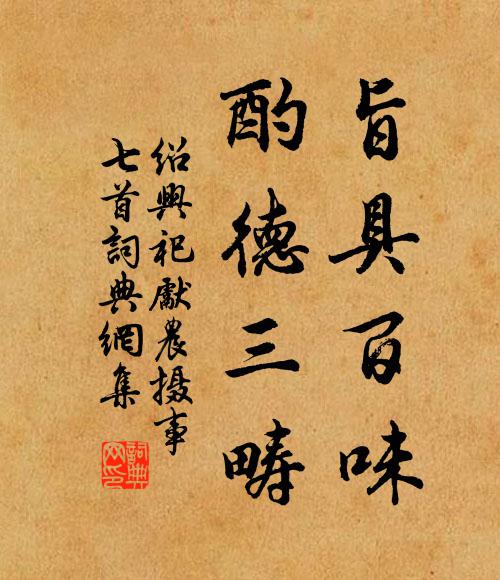 旨具百味
酌德三畴
绍興祀獻農摄事
七首詞典網集
詞典网印